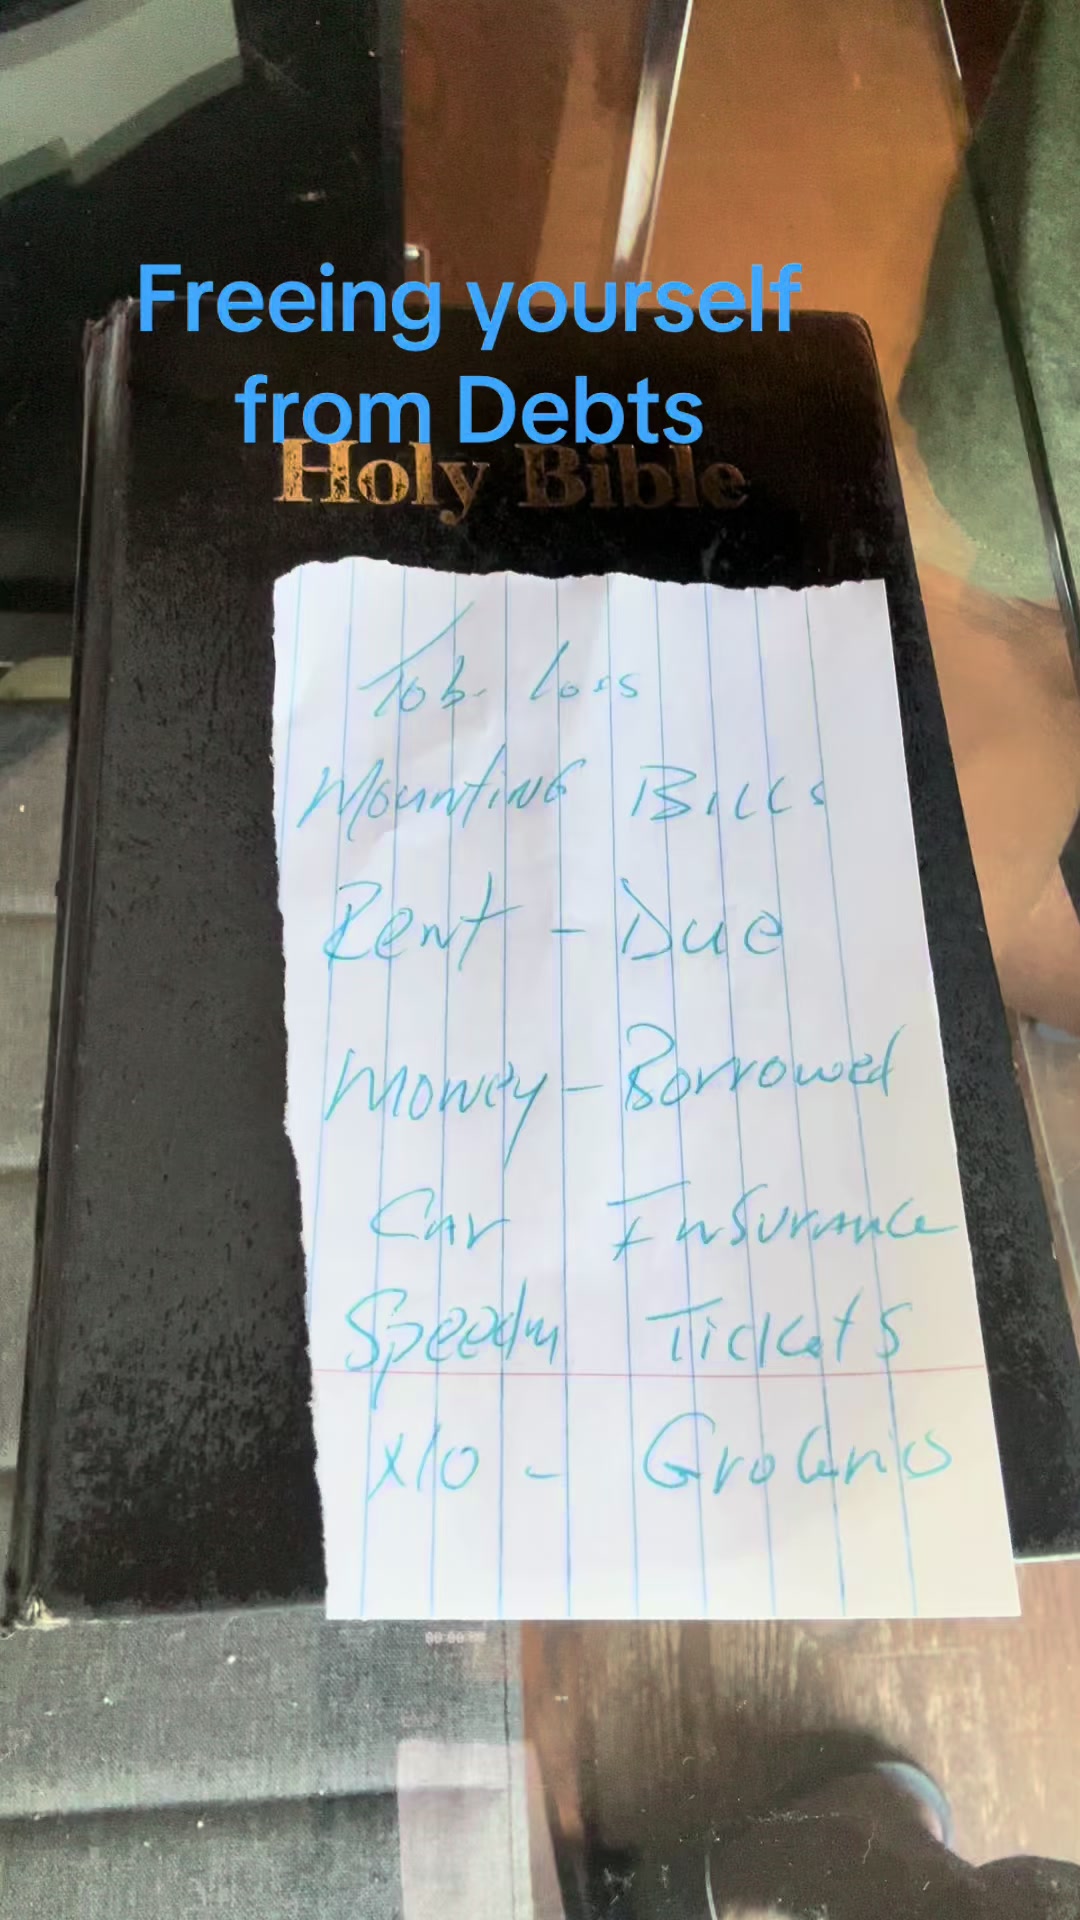 Freeing yourself
from Debts
Holy Bible
Job loss
Mounting Bills
Rent - Due
Money - Borrowed
Car Insurance
Tickets
x10 -